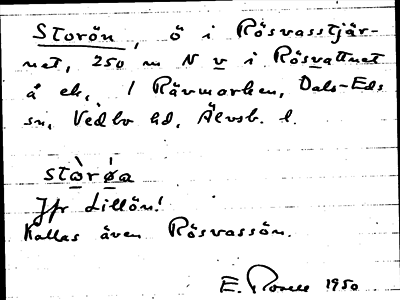 Storön, ö i Rösvasstjär-
net, 250 m N v i Rösvattnet
å ek, 1 Rävmarken, Dals-Eds
sn, Vedbo hd, Älvsb. l.
stòrǿa
Jfr Lillön!
Kallas även Rösvassön.
E. 1950